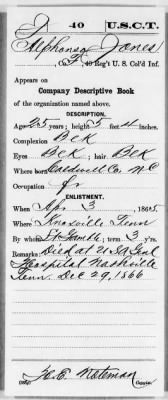 J 40 U.S.C.T.
Alphonso Jones
, Co. F, 40 Reg't U. S. Col'd Inf.
Appears on
Company Descriptive Book
of the organization named above.
DESCRIPTION.
Age 25 years; height 5 feet 4 inches.
Complexion Bck
Eyes Bck; hair Bck
Where born Caldwell Co. N C
Occupation fr
ENLISTMENT.
When Apr 3, 1865.
Where Knoxville Tenn
By whom Lt Gamble; term 3 y'rs.
Remarks: Died at U.S. Genl
Hospital Nashville
Tenn. Dec 29, 1866
H. C. Noteman
Copyist.